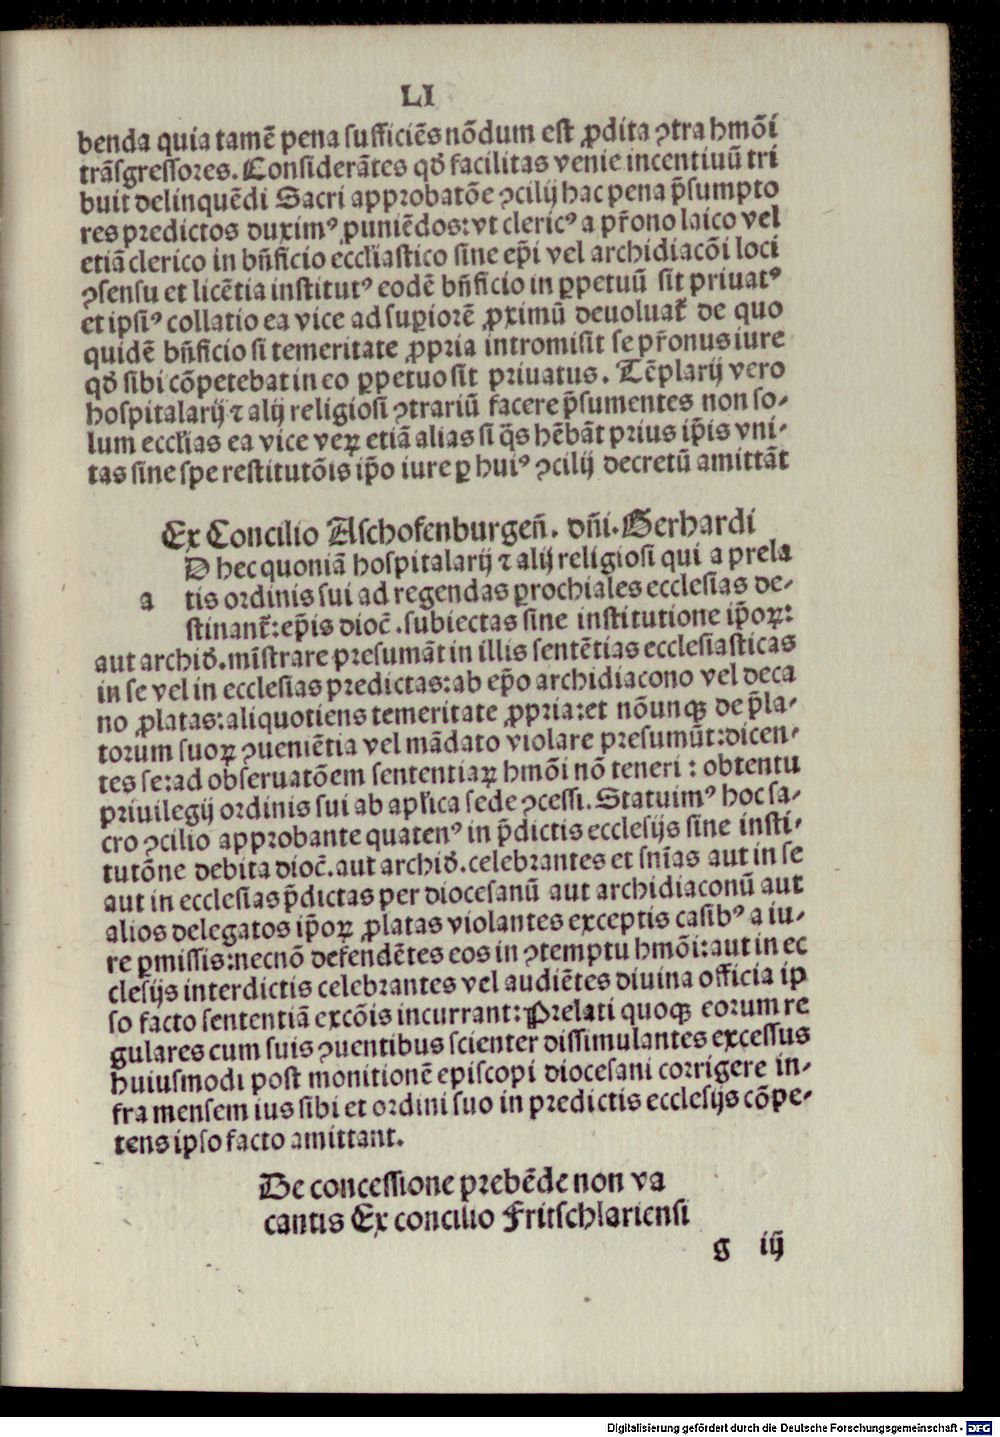 LI
benda quia tamē pena sufficiēs nōdum est ꝓdita ꝯtra hmōi
trāsgressores. Considerātes qđ facilitas venie incentiuū tri
buit delinquēdi Sacri approbatōe ꝯcilij hac pena p̄sumpto
res predictos duximꝰ puniēdos: vt clericꝰ a pr̄ono laico vel
etiā clerico in bn̄ficio eccl̄iastico sine ep̄i vel archidiacōi loci
ꝯsensu et licētia institutꝰ eodē bn̄ficio in ꝑpetuū sit priuatꝰ
et ipsiꝰ collatio ea vice ad suꝑiorē ꝓximū deuoluat̄ de quo
quidē bn̄ficio si temeritate ꝓpria intromisit se pr̄onus iure
qđ sibi cōpetebat in eo ꝑpetuo sit priuatus. Tēplarij vero
hospitalarij ⁊ alij religiosi ꝯtrariū facere p̄sumentes non so-
lum eccl̄ias ea vice veꝝ etiā alias si q̄s hēbāt prius ip̄is vni-
tas sine spe restitutōis ip̄o iure ꝑ huiꝰ ꝯcilij decretū amittāt
Ex Concilio Aschofenburgen̄. dn̄i. Gerhardi
D hec quoniā hospitalarij ⁊ alij religiosi qui a prela
a tis ordinis sui ad regendas ꝑrochiales ecclesias de-
stinant̄: ep̄is dioc̄. subiectas sine institutione ip̄oꝝ:
aut archiđ. mīstrare presumāt in illis sentētias ecclesiasticas
in se vel in ecclesias predictas: ab ep̄o archidiacono vel deca
no ꝓlatas: aliquotiens temeritate ꝓpria: et nōunqꝫ de p̄la-
torum suoꝝ ꝯueniētia vel mādato violare presumūt: dicen-
tes se: ad obseruatōem sententiaꝝ hmōi nō teneri: obtentu
priuilegij ordinis sui ab apl̄ica sede ꝯcessi. Statuimꝰ hoc sa-
cro ꝯcilio approbante quatenꝰ in p̄dictis ecclesijs sine insti-
tutōne debita dioc̄. aut archiđ. celebrantes et sn̄ias aut in se
aut in ecclesias p̄dictas per diocesanū aut archidiaconū aut
alios delegatos ip̄oꝝ ꝓlatas violantes exceptis casibꝰ a iu-
re ꝑmissis: necnō defendētes eos in ꝯtemptu hmōi: aut in ec
clesijs interdictis celebrantes vel audiētes diuina officia ip
so facto sententiā excōis incurrant: Prelati quoqꝫ eorum re
gulares cum suis ꝯuentibus scienter dissimulantes excessus
huiusmodi post monitionē episcopi diocesani corrigere in-
fra mensem ius sibi et ordini suo in predictis ecclesijs cōpe-
tens ipso facto amittant.
De concessione prebēde non va
cantis Ex concilio Fritschlariensi
g iij
Digitalisierung gefördert durch die Deutsche Forschungsgemeinschaft - DFG